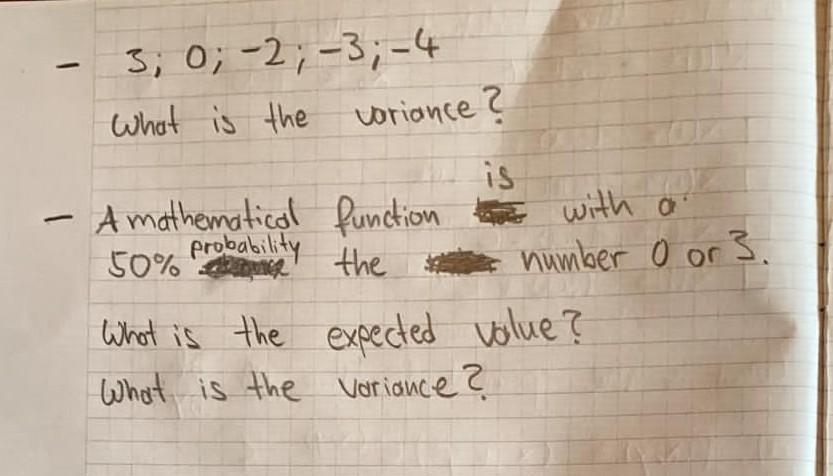 - 3; 0; -2; -3; -4
What is the variance?
- A mathematical function is with a
50% probability the number 0 or 3.
What is the expected value?
What is the variance?